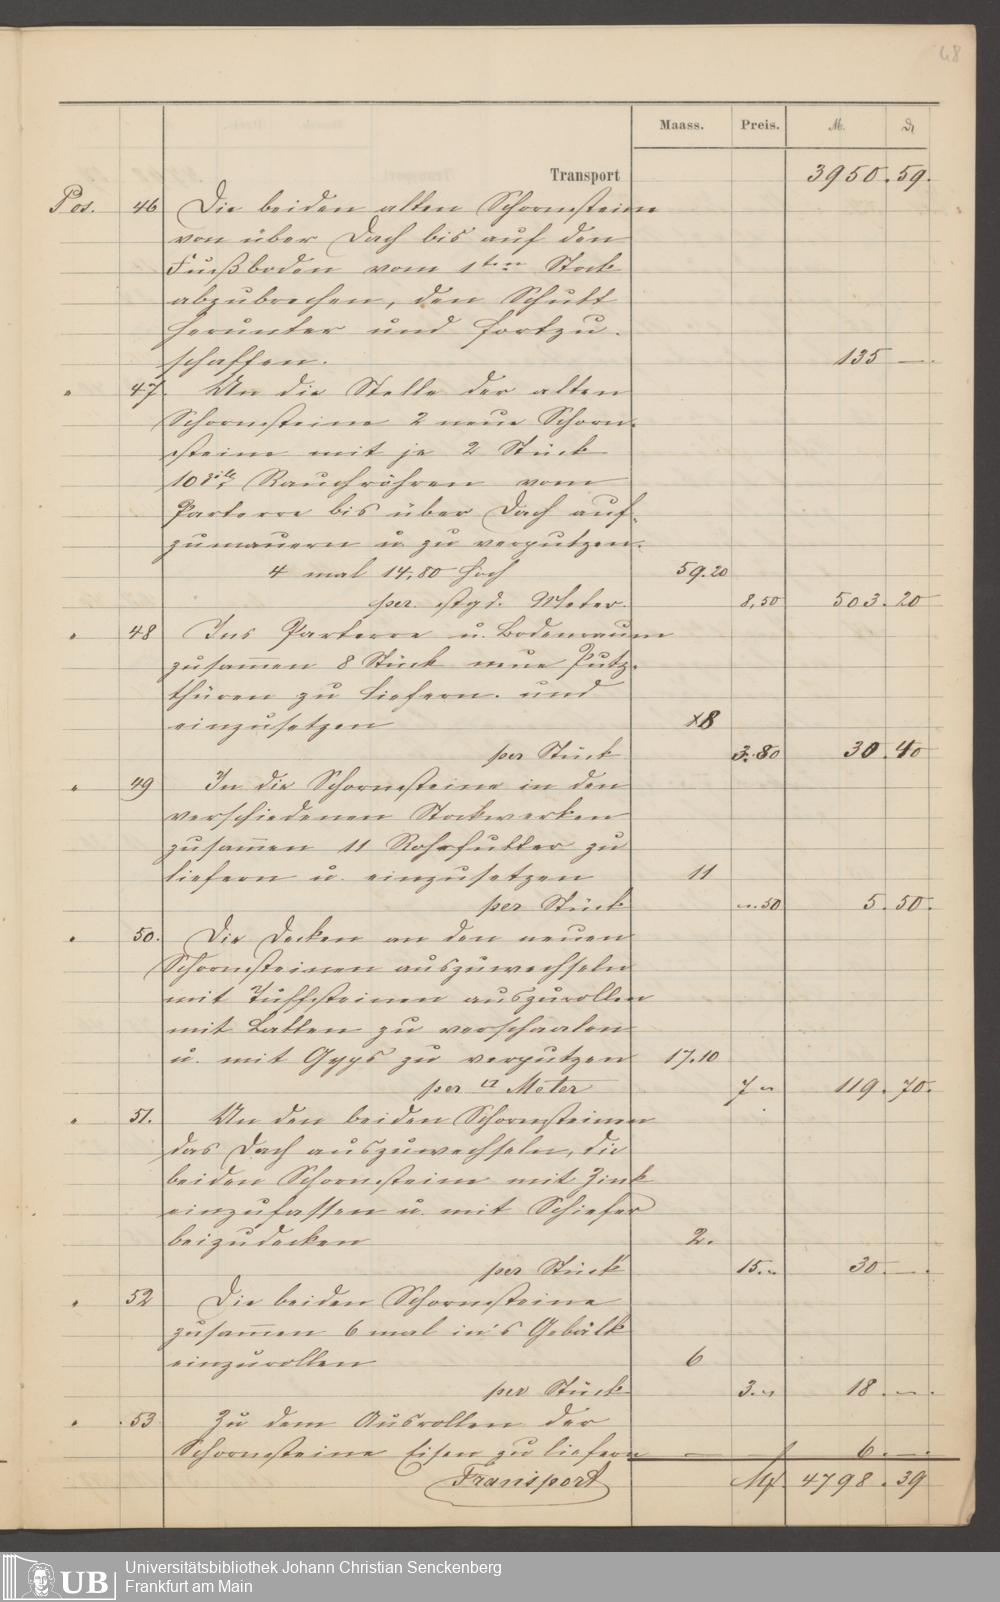 68
Maass. Preis. M. ₰
Transport 3950. 59.
Pos. 46 Die beiden alten Schornsteine
von über Dach bis auf den
Fußboden vom 1ten Stock
abzubrechen, den Schutt
herunter und fortzu-
schaffen. 135 —.
" 47 An die Stelle der alten
Schornsteine 2 neue Schorn-
steine mit je 2 Stück
Rauchröhren vom
Parterre bis über Dach auf-
zumauern u. zu verputzen.
4 mal 14,80 hoch 59.20
per. stgd. Meter. 8,50 503. 20
" 48 Ins Parterre u. Bodenraum
zusam̄en 8 Stück neue Putz-
thüren zu liefern. und
einzusetzen 8
per Stück 3.80 30. 40
" 49 In die Schornsteine in den
verschiedenen Stockwerken
zusam̄en 11 Rohrfutter zu
liefern u. einzusetzen 11
per Stück –.50 5. 50.
" 50. Die Decken an den neuen
Schornsteinen auszuwechseln
mit Tuffsteinen auszurollen
mit Latten zu verschaalen
u. mit Gyps zu verputzen 17.10
per □ Meter 7 – 119. 70.
" 51. An den beiden Schornsteinen
das Dach auszuwechseln, die
beiden Schornsteine mit Zink
einzufassen u. mit Schiefer
beizudecken 2.
per Stück 15.– 30.—.
" 52 Die beiden Schornsteine
zusam̄en 6 mal in's Gebälk
einzurollen 6
per Stück 3.– 18.—.
" 53 Zu dem Ausrollen der
Schornsteine Eisen zu liefern — — 6.—.
Transport M. 4798. 39
UB Universitätsbibliothek Johann Christian Senckenberg
Frankfurt am Main